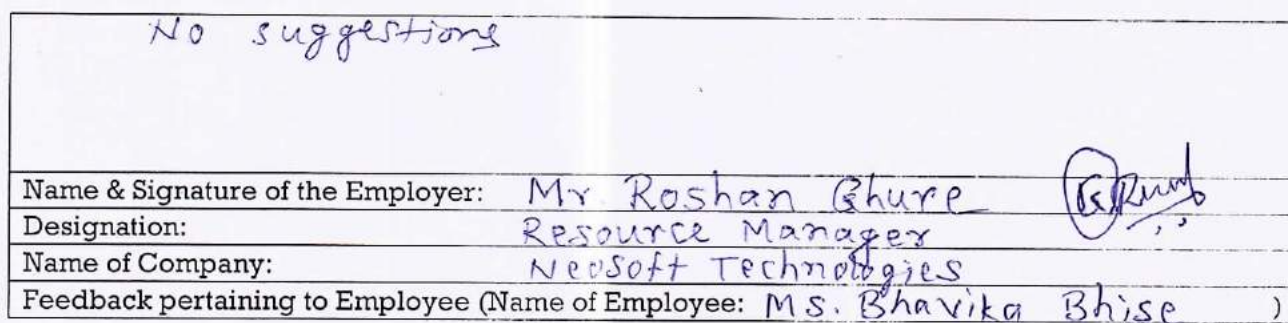 No suggestions
Name & Signature of the Employer: Mr Roshan Ghure
Designation: Resource Manager
Name of Company: Neosoft Technologies
Feedback pertaining to Employee (Name of Employee: Ms. Bhavika Bhise )